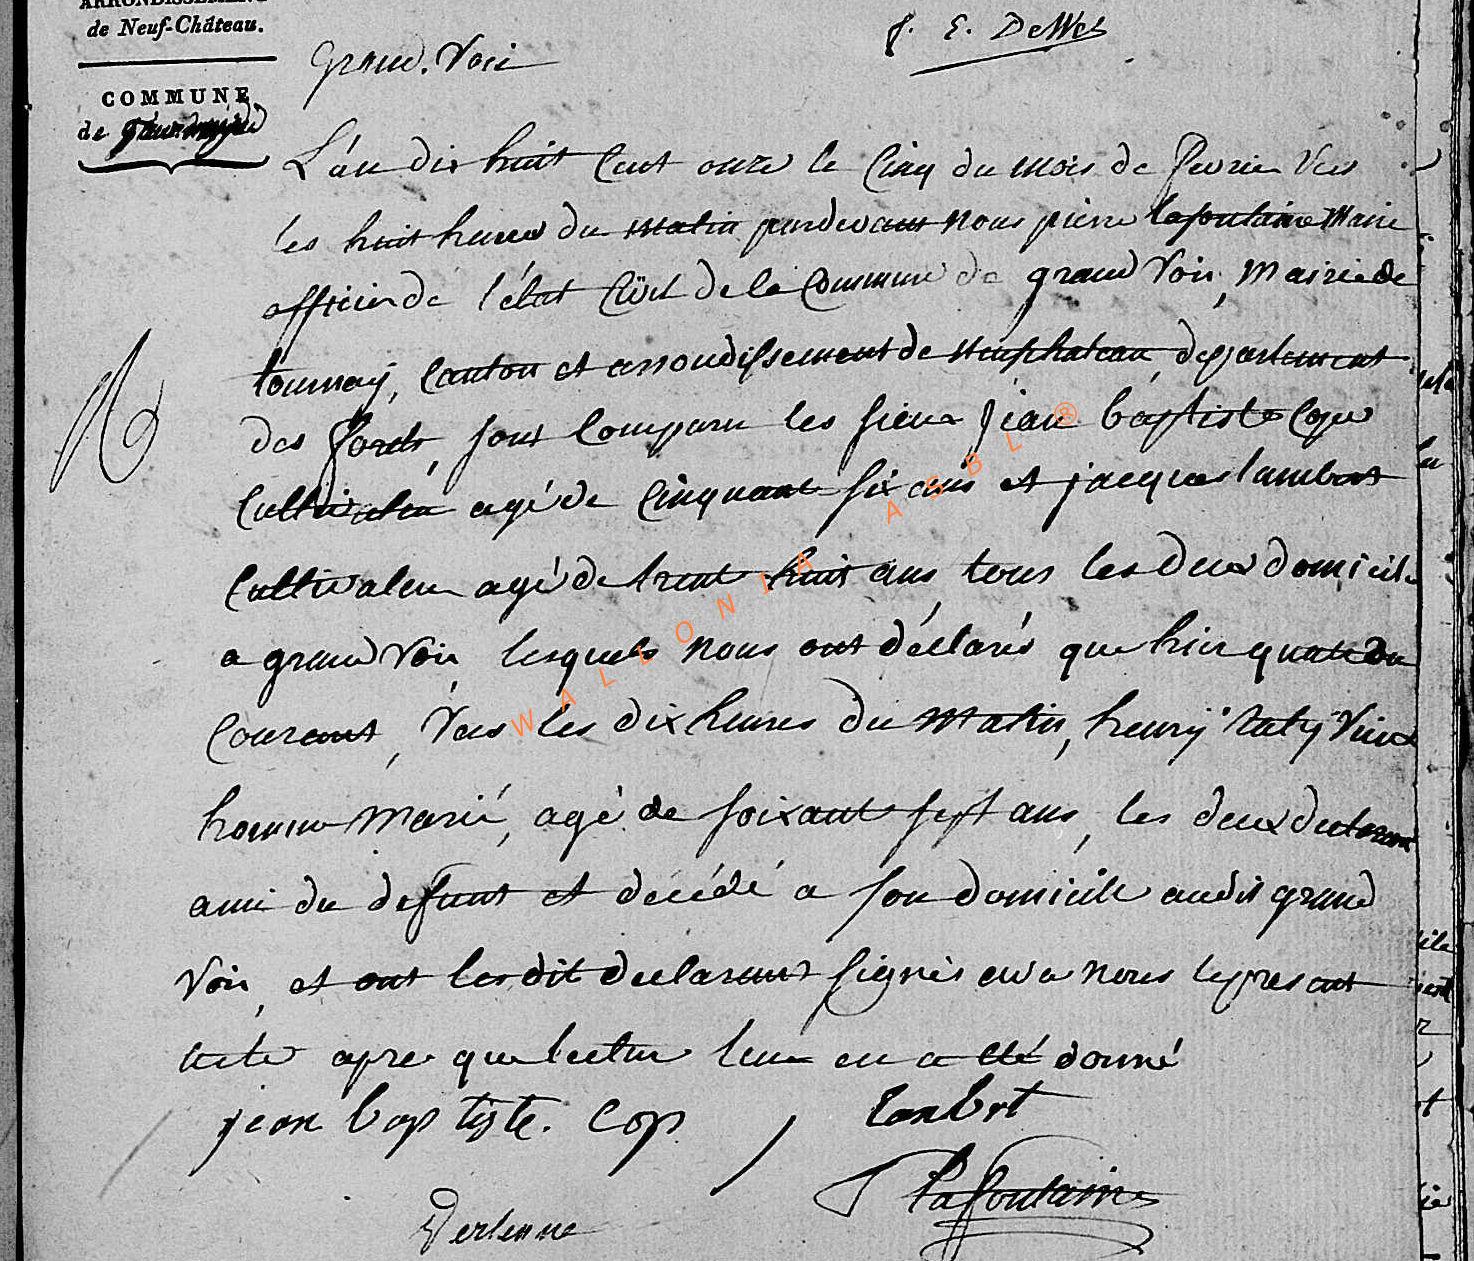 ARRONDISSEMENT
de Neuf-Château.
J. E. DeWez
Grand. Voir
COMMUNE
de
L'an dix huit cent onze le cinq du mois de fevrier vers
les huit heures du matin pardevant nous pierre lafontaine Maire
officier de l'état Civil de la Commune de grand Voir, Mairie de
tournay, Canton et arrondissement de neufchateau, departement
des forets, sont comparu les sieur jean baptiste Cop
Cultivateur agé de cinquant six ans et jacques lambert
Cultivateur agé de trent huit ans tous les deux domicile
a grand Voir, lesquels nous ont déclarés que hier quatre du
Courant, Vers les dix heures du Matin, henry
homme Marié, agé de soixant sept ans, les deux declarant
ami du defunt et décédé a son domicile audit grand
Voir, et ont les dit declarant signés avec nous le present
acte apres que lecture leur en a été donné
jean baptiste. Cop
Lambert
Lafontaine
W A L L O N I A A S B L ®